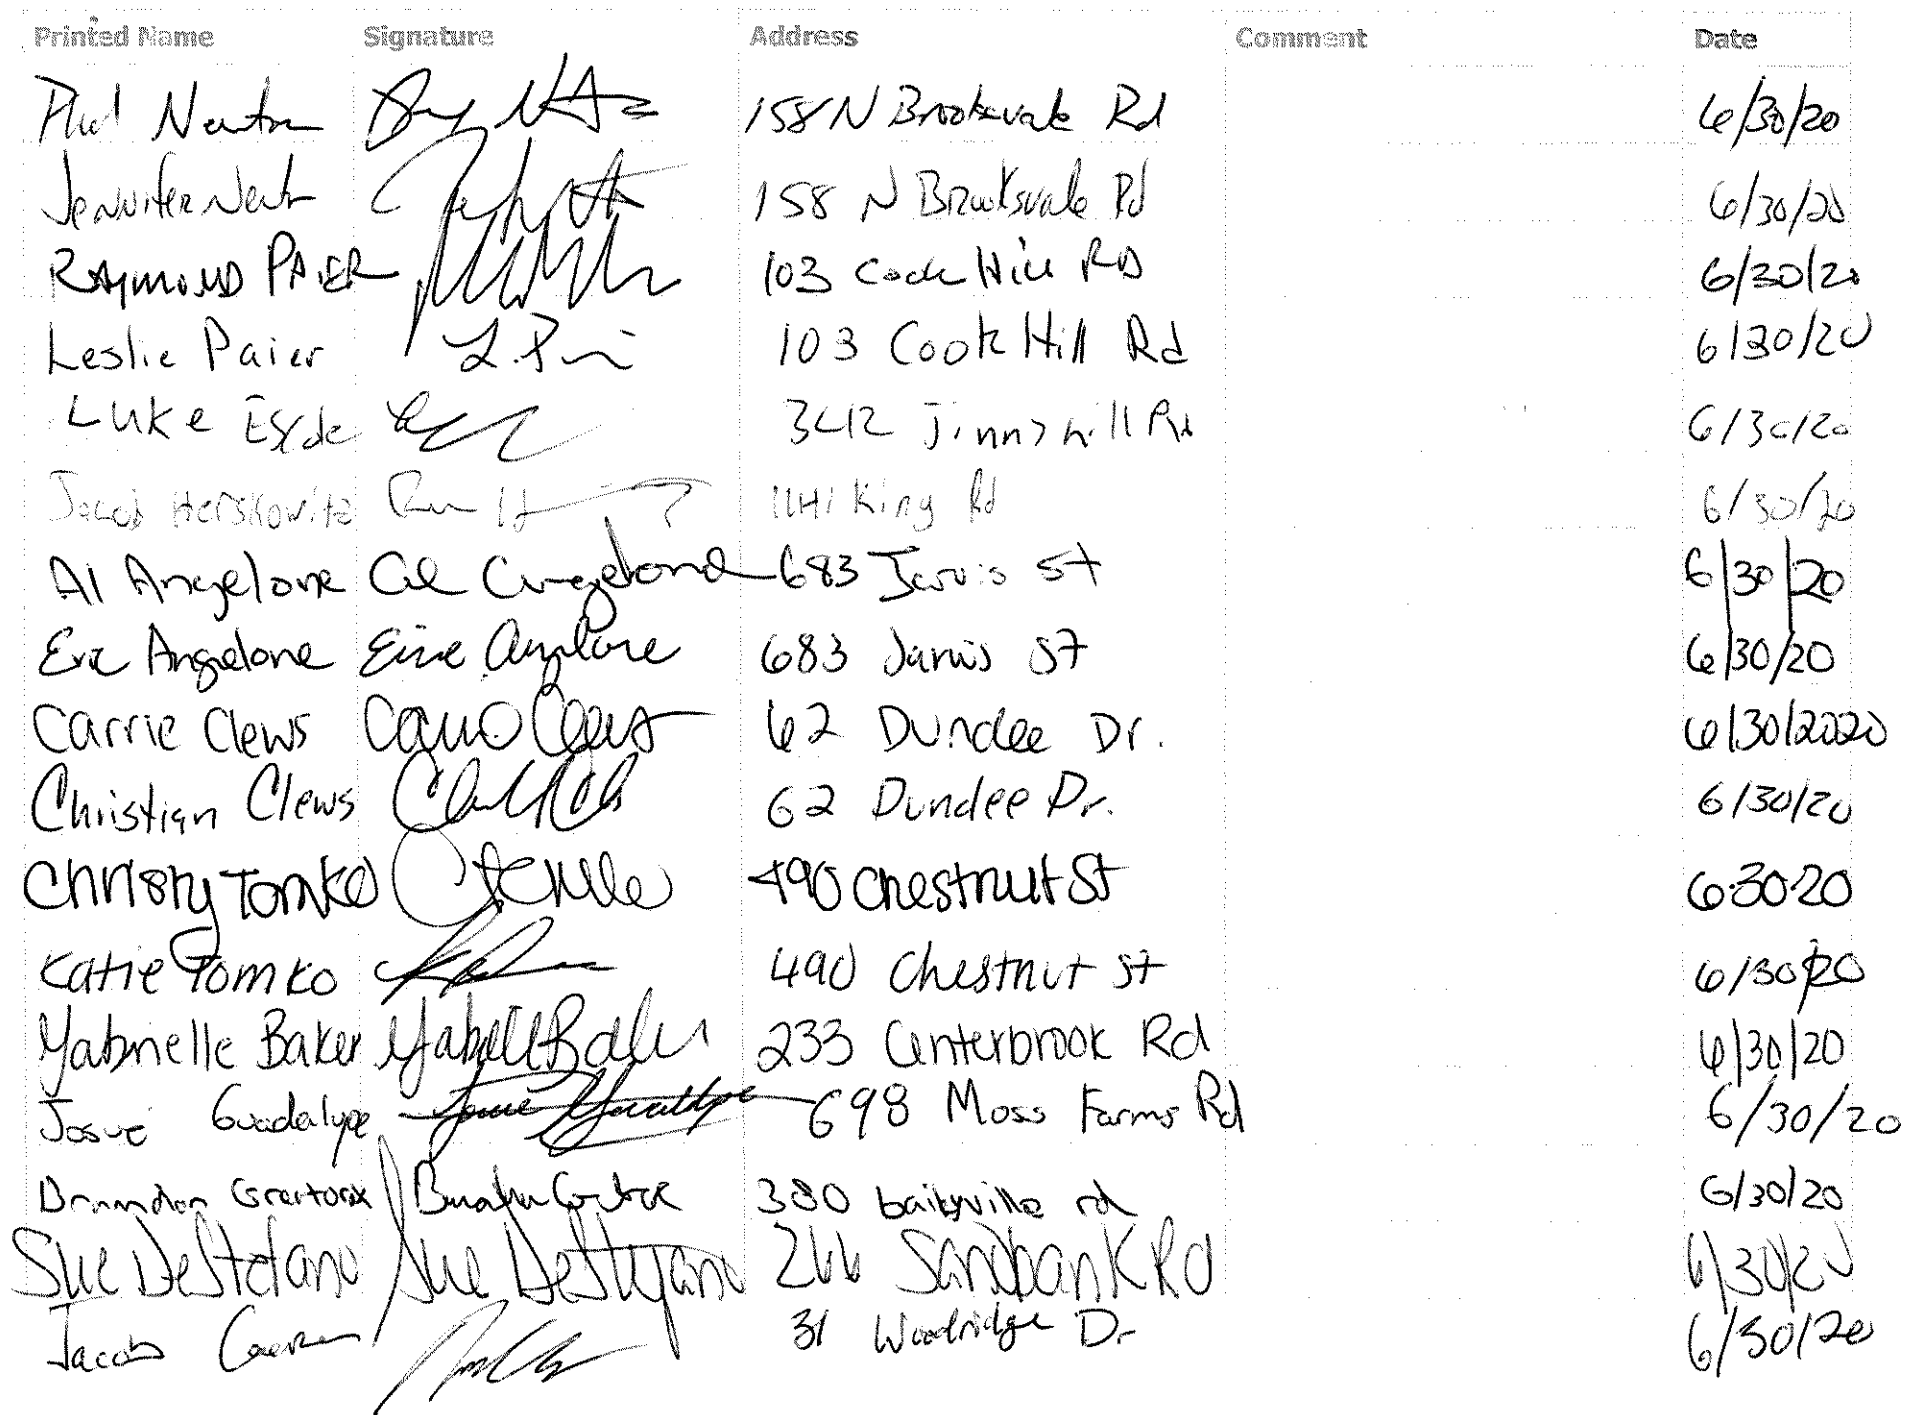 Printed Name Signature Address Comment Date
Newton 158 N Brooksvale Rd 6/30/20
Jennifer 158 N Brooksvale Rd 6/30/20
RAYMOND PAIER 103 Cook Hill RD 6/30/20
Leslie Paier L. 103 Cook Hill Rd 6/30/20
Luke 6/30/20
Jacob Herskovitz King Rd 6/30/20
Al Angelone Al Angelone 683 Jarvis St 6/30/20
Angelone Angelone 683 Jarvis St 6/30/20
Carrie Clews Carrie Clews 62 Dundee Dr. 6/30/2020
Christian Clews 62 Dundee Dr. 6/30/20
Christy Tomko 490 Chestnut St 6-30-20
Katie Tomko 490 Chestnut St 6/30/20
Gabrielle Baker Gabrielle Baker 233 Centerbrook Rd 6/30/20
Josue Guadalupe Josue Guadalupe 698 Moss Farms Rd 6/30/20
Brandon 380 rd 6/30/20
Sue DeStefano Sue DeStefano 266 Sandbank Rd 6/30/20
Jacob 31 Woodridge Dr 6/30/20